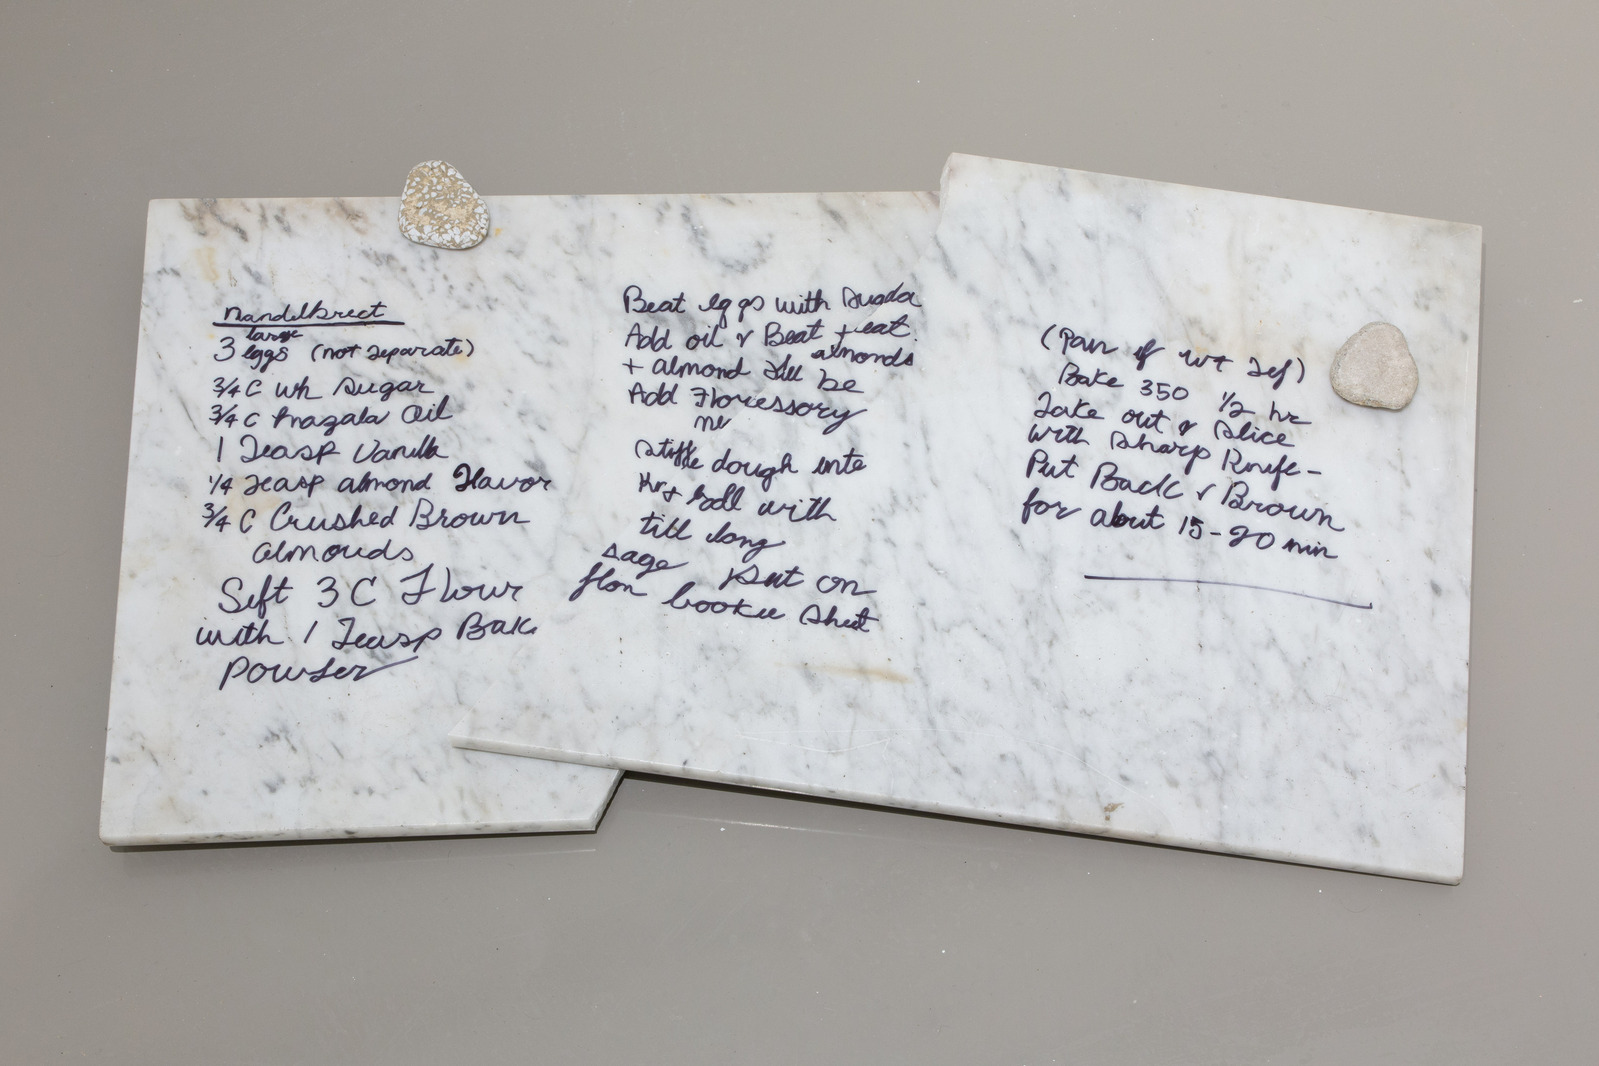 Mandelbreit
3 large eggs (not seperate)
3/4 C wh Sugar
3/4 C Mazala Oil
1 Teasp Vanilla
1/4 Teasp almond Flavor
3/4 C Crushed Brown
almonds
Sift 3 C Flour
with 1 Teasp Bak
Powder
Beat eggs with
Add oil & Beat
+ almond almonds
Add
stiff dough
roll with
till long
Put on
cookie sheet
(Pan if
Bake 350 1/2 hr
Take out & Slice
with sharp Knife -
Put Back & Brown
for about 15-20 min